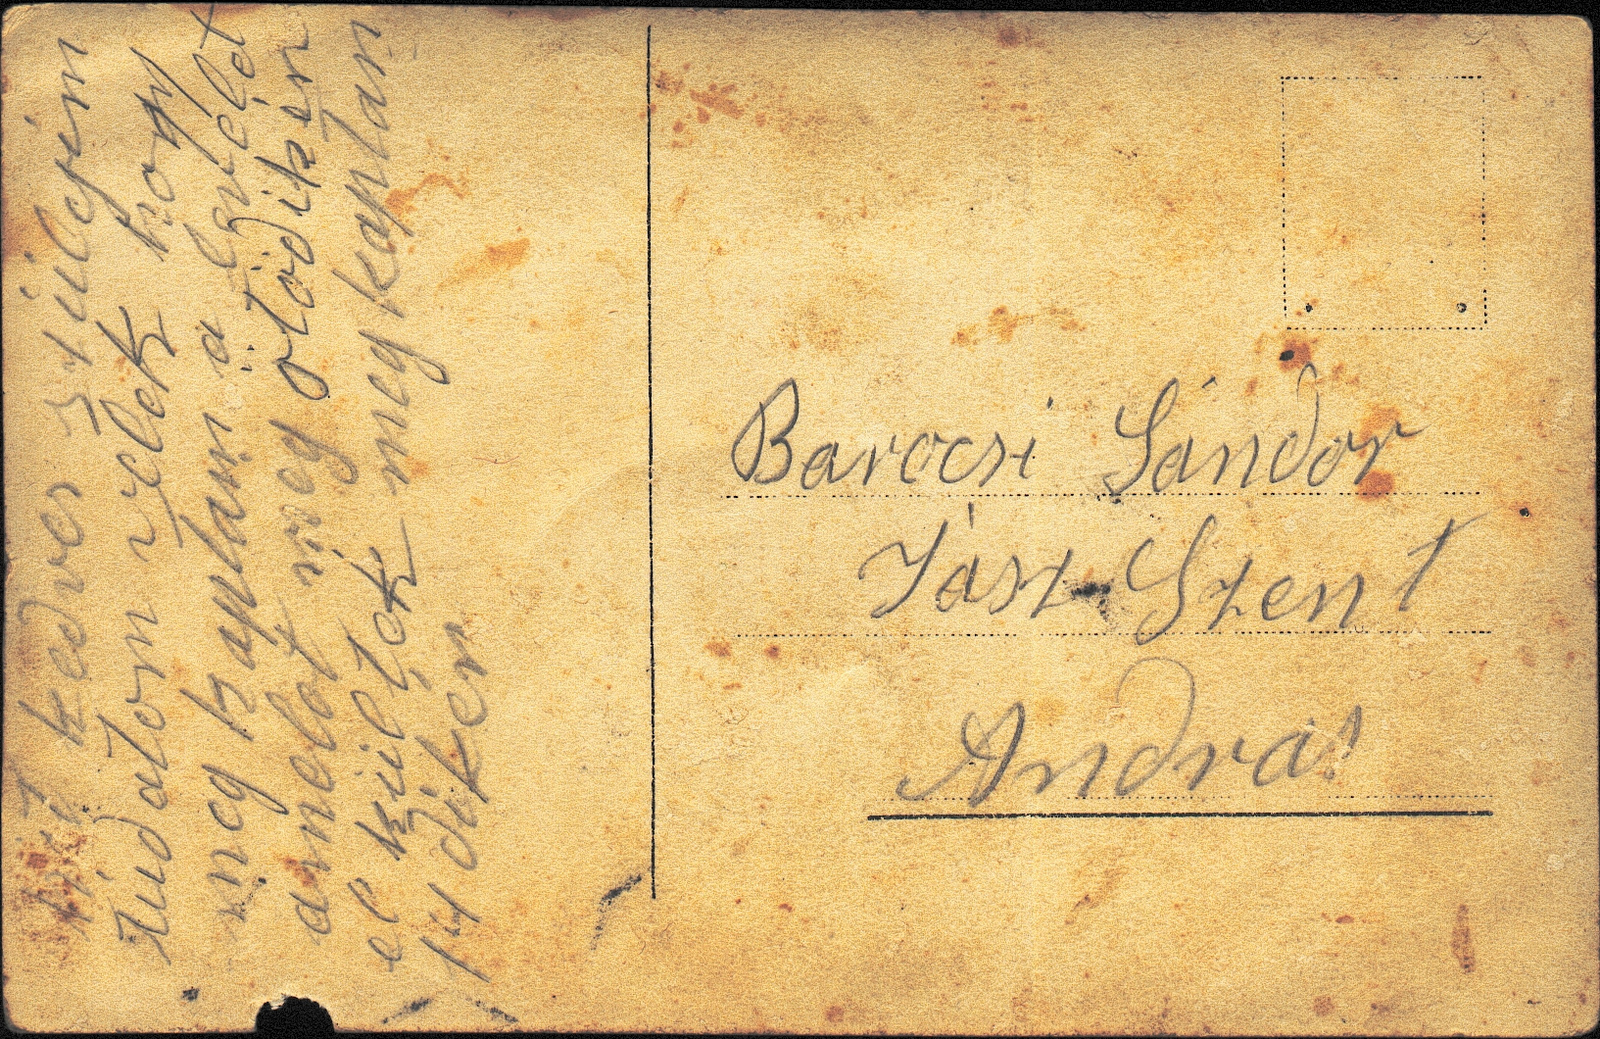 kedves szüleim
tudatom velek hogy
meg kaptam a levélt
amelot még ötödikén
el küiltek meg kaptam
14 dikén
Barocsi Sándor
Jász Szent
András